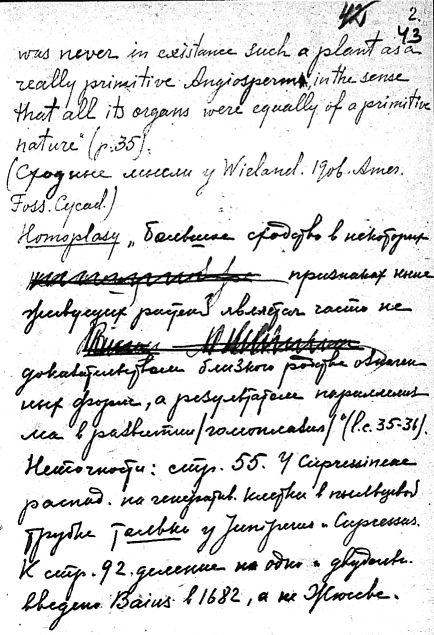 2.
43
was never in existance such a plant as a
really primitive Angiosperm, in the sense
that all its organs were equally of a primitive
nature" (p. 35).
(Сходные мысли у Wieland. 1906. Amer.
Foss. Cycad.)
Homoplasy „большое сходство в некоторых
признаках ныне
живущих растений является часто не
доказательством близкого родства означен-
ных форм, а результатом параллелиз-
ма в развитии /гомоплазия/" (l.c. 35-36).
Неточности: стр. 55. У Cupressineae
распад. на генератив. клетки в пыльцевой
трубке только у Juniperus и Cupressus.
К стр. 92. деление на одно и двудольн.
введено в 1682, а не Жюсье.